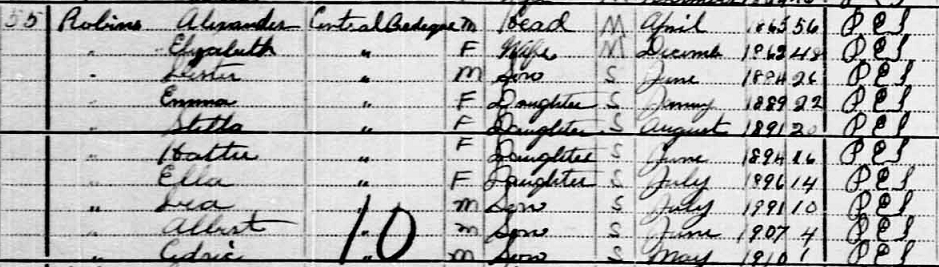 55 Robins Alexander Central Bedeque M Head M April 1865 56 P E I
" Elizabeth " F Wife M Decemb 1862 48 P E I
" Lester " M Son S June 1894 26 P E I
" Emma " F Daughter S January 1889 22 P E I
" Stella " F Daughter S August 1891 20 P E I
" Hattie " F Daughter S June 1894 16 P E I
" Ella " F Daughter S July 1896 14 P E I
" " M Son S July 1991 10 P E I
" Albert " M Son S June 1907 4 P E I
" Cedric " M Son S May 1910 1 P E I
10